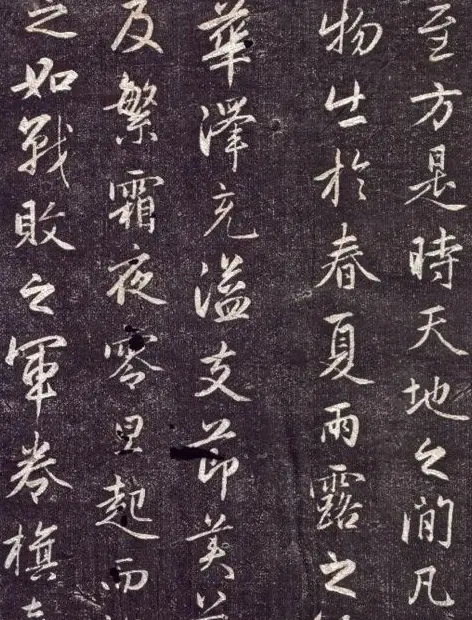 至方是時天地之間凡
物生於春夏雨露之
華澤充溢支節美
及繁霜夜零旦起而
之如戰敗之軍卷旗